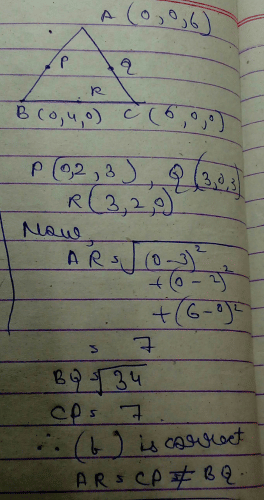 A (0,0,6)
P Q
R
B (0,4,0) C (6,0,0)
P(0,2,3), Q(3,0,3)
R(3,2,0)
Now,
AR = √(0-3)²
+(0-2)²
+(6-0)²
= 7
BQ = √34
CP = 7
∴ (b) is correct
AR = CP ≠ BQ.